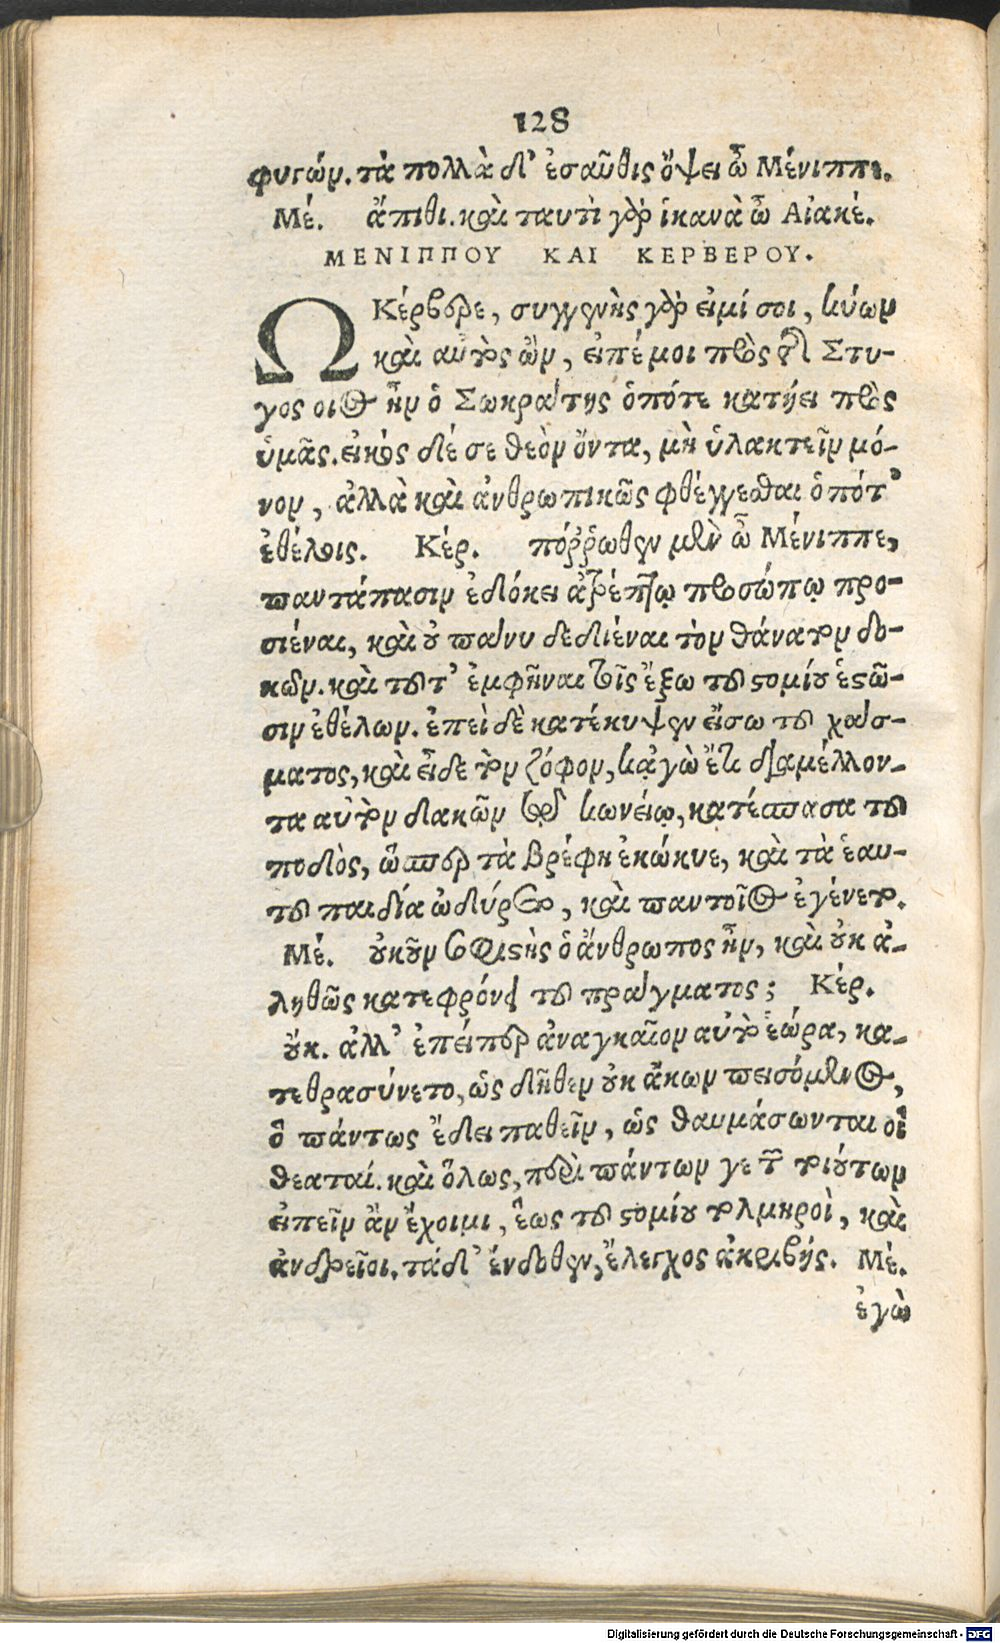 128
φυγών. τὰ πολλὰ δ' ἐσαῦθις ὄψει ὦ Μένιππε.
Μέ. ἄπιθι. καὶ ταυτὶ γὰρ ἱκανὰ ὦ Αἰακέ.
ΜΕΝΙΠΠΟΥ ΚΑΙ ΚΕΡΒΕΡΟΥ.
Ω Κέρβερε, συγγενὴς γάρ εἰμί σοι, κύων
καὶ αὐτὸς ὢν, εἰπέ μοι πρὸς τῆς Στυ-
γὸς οἷος ἦν ὁ Σωκράτης ὁπότε κατῄει πρὸς
ὑμᾶς. εἰκὸς δέ σε θεὸν ὄντα, μὴ ὑλακτεῖν μό-
νον, ἀλλὰ καὶ ἀνθρωπικῶς φθέγγεσθαι ὁπότ'
ἐθέλοις. Κέρ. πόῤῥωθεν μὲν ὦ Μένιππε,
παντάπασιν ἐδόκει ἀτρέπτῳ προσώπῳ προ-
σιέναι, καὶ οὐ πάνυ δεδιέναι τὸν θάνατον δο-
κῶν. καὶ τοῦτ' ἐμφῆναι τοῖς ἔξω τοῦ στομίου ἑστῶ-
σιν ἐθέλων. ἐπεὶ δὲ κατέκυψεν εἴσω τοῦ χάσ-
ματος, καὶ εἶδε τὸν ζόφον, κἀγὼ ἔτι διαμέλλον-
τα αὐτὸν δακὼν τῷ κωνείῳ, κατέσπασα τοῦ
ποδὸς, ὥσπερ τὰ βρέφη ἐκώκυε, καὶ τὰ ἑαυ-
τοῦ παιδία ὠδύρετο, καὶ παντοῖος ἐγένετο.
Μέ. οὐκοῦν σοφιστὴς ὁ ἄνθρωπος ἦν, καὶ οὐκ ἀ-
ληθῶς κατεφρόνει τοῦ πράγματος; Κέρ.
οὔκ. ἀλλ' ἐπείπερ ἀναγκαῖον αὐτὸ ἑώρα, κα-
τεθρασύνετο, ὡς δῆθεν οὐκ ἄκων πεισόμενος,
ὃ πάντως ἔδει παθεῖν, ὡς θαυμάσωνται οἱ
θεαταί. καὶ ὅλως, περὶ πάντων γε τῶν τοιούτων
εἰπεῖν ἂν ἔχοιμι, ἕως τοῦ στομίου τολμηροὶ, καὶ
ἀνδρεῖοι. τὰ δ' ἔνδοθεν, ἔλεγχος ἀκριβής. Μέ.
ἐγὼ
Digitalisierung gefördert durch die Deutsche Forschungsgemeinschaft - DFG